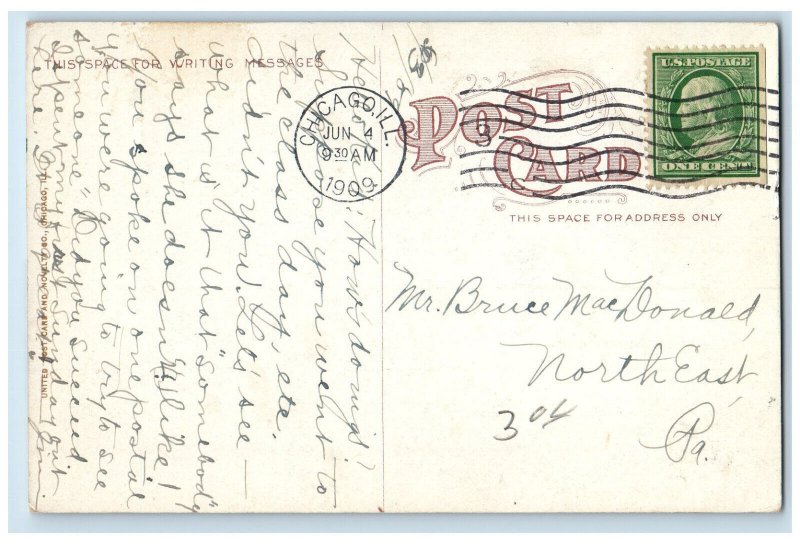 THIS SPACE FOR WRITING MESSAGES
Hello! How's doings?
I suppose you went to
the class day, etc.
didn't you. Let's see —
what is it that "somebody"
says she doesn't like!
You spoke on one postal
you were going to try to see
someone" Did you succeed
I spent my first Sunday out
here.
Jim
UNITED POST CARD AND NOVELTY CO., CHICAGO, ILL.
CHICAGO, ILL.
JUN 4
9 30 AM
1909
3
U.S. POSTAGE
ONE CENT
POST
CARD
THIS SPACE FOR ADDRESS ONLY
Mr. Bruce MacDonald,
North East,
304
Pa.